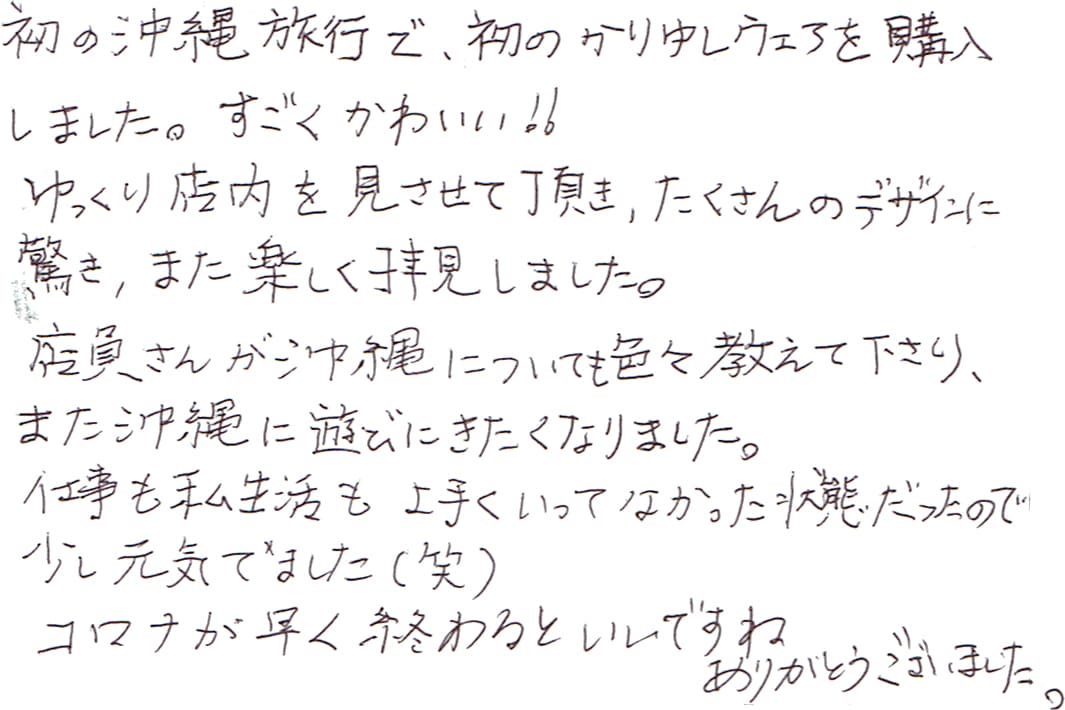 初の沖縄旅行で、初のかりゆしウェアを購入
しました。すごくかわいい!!
ゆっくり店内を見させて頂き,たくさんのデザインに
驚き,また楽しく拝見しました。
店員さんが沖縄についても色々教えて下さり、
また沖縄に遊びにきたくなりました。
仕事も私生活も上手くいってなかった状態だったので
少し元気でました(笑)
コロナが早く終わるといいですね
ありがとうございました。